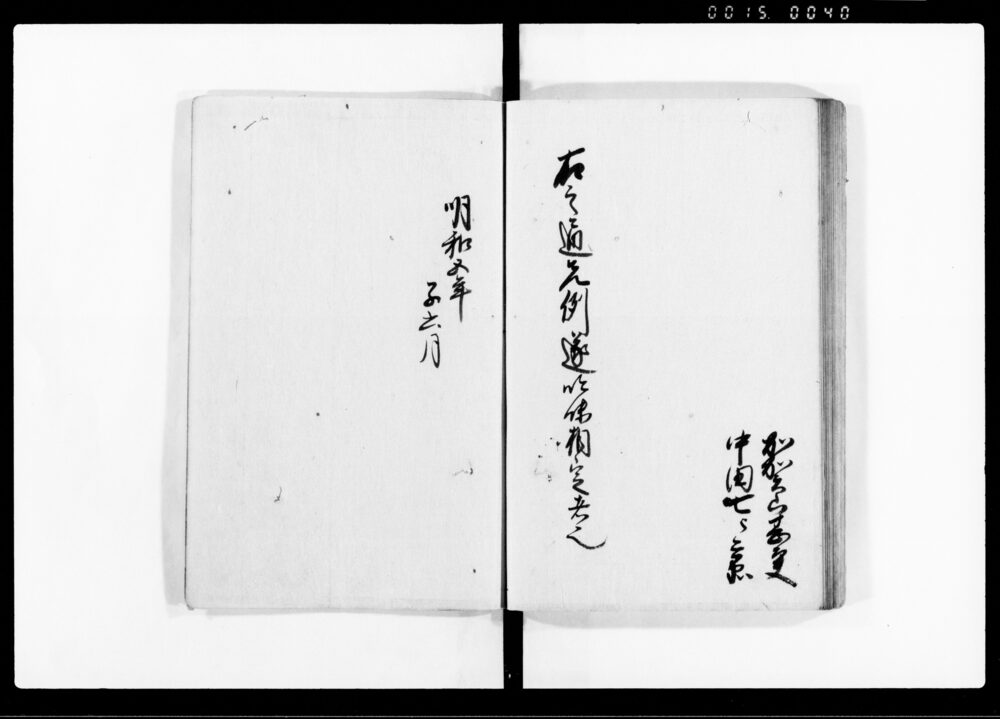 0015. 0040
加賀山甚
中国七
右之通先例遂吟味相定者也
明和五年
子六月